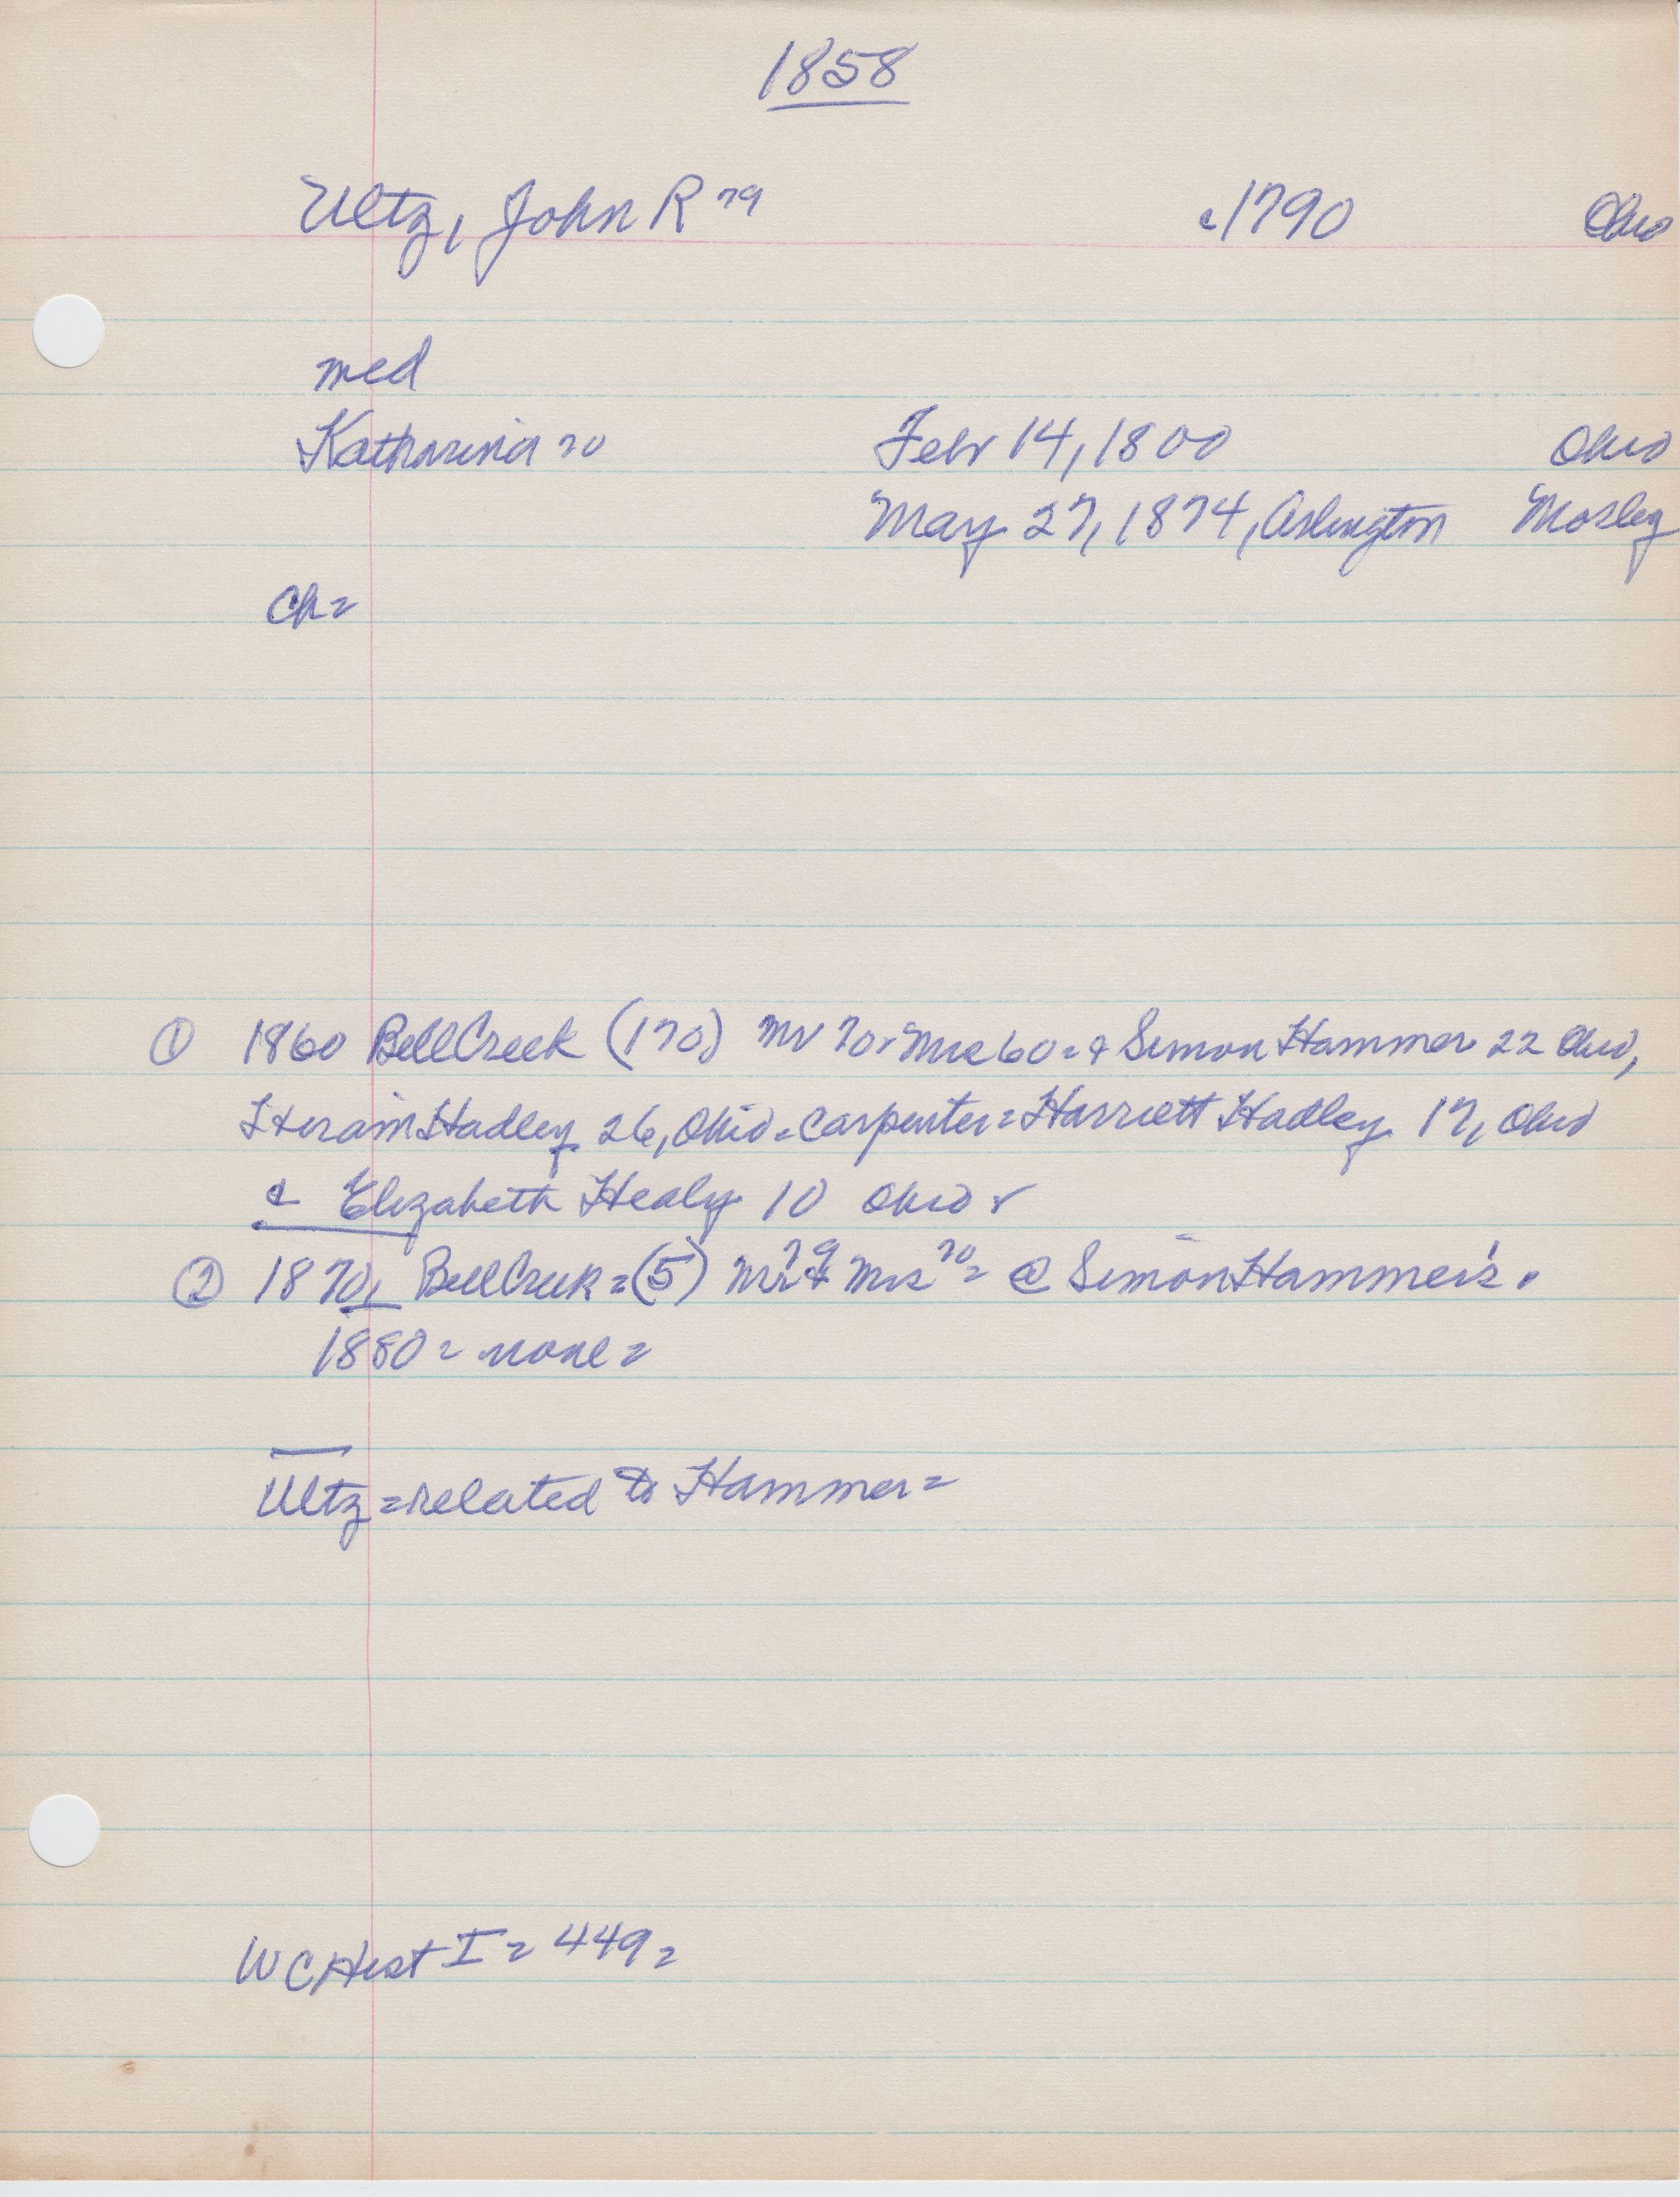 1858
Ultz, John R 79 c1790 Ohio
med
Katharina 70 Febr 14, 1800 Ohio
May 27, 1874, Arlington Mosley
Ch=
① 1860 Bell Creek (170) Mr 70 = Mrs 60 = & Simon Hammer 22 Ohio,
Hiram Hadley 26, Ohio = Carpenter = Harriett Hadley 17, Ohio
& Elizabeth Healy 10 Ohio
② 1870, Bell Creek = (5) Mr 79 & Mrs 70 = @ Simon Hammer's.
1880 = none =
Ultz = related to Hammer =
WC Hist I = 449 =